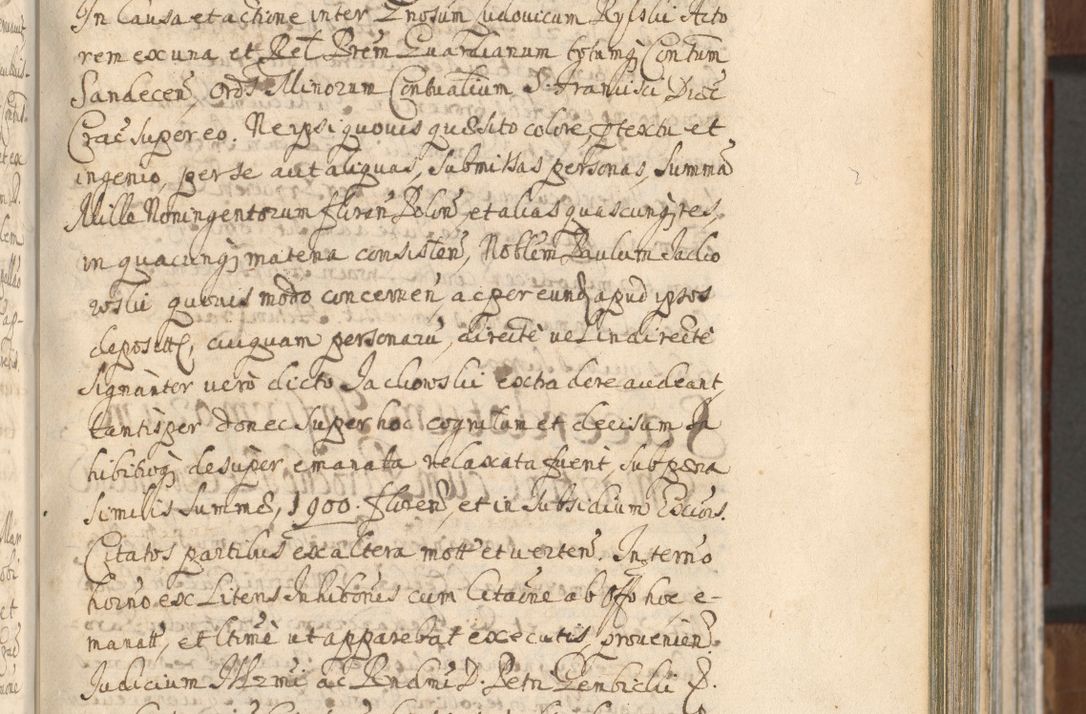 In Causa et actione inter Gnosum Ludovicum Rylski Acto
rem ex una et Rel Prem Guardianum totumq Contum
Sandecen, Ords Minorum Contualium S. Francisci Diæc
Crac super eo. Ne ipsi quovis quæsito colore, ptextu et
ingenio, per se aut aliquas, submissas personas, summã
Mille Noningentorum floren Polon, et alias quascunq, res,
in quacunq materia consisten, Noblem Paulum Jachio
wski quovis modo concernen ac per eund apud ipsos
deposit, cuiquam personaru, directe vel indirecte
signanter vero dicto Jachowski extra dere audeant,
tantisper donec super hoc cognitum et decisum In
hibitioq desuper emanata relaxata fuerit, sub pœna
similis summæ, 1900. floren, et in subsidium Excōis.
Citatos partibus ex altera mott et verten. In terno
horno ex Litens Inhibonis cum Citaōne ab Offo hoc e-
manatt, et ltime ut apparebat executis, provenien.
Judicium Illrmi ac Rndmi D. Petri Gembicki D.